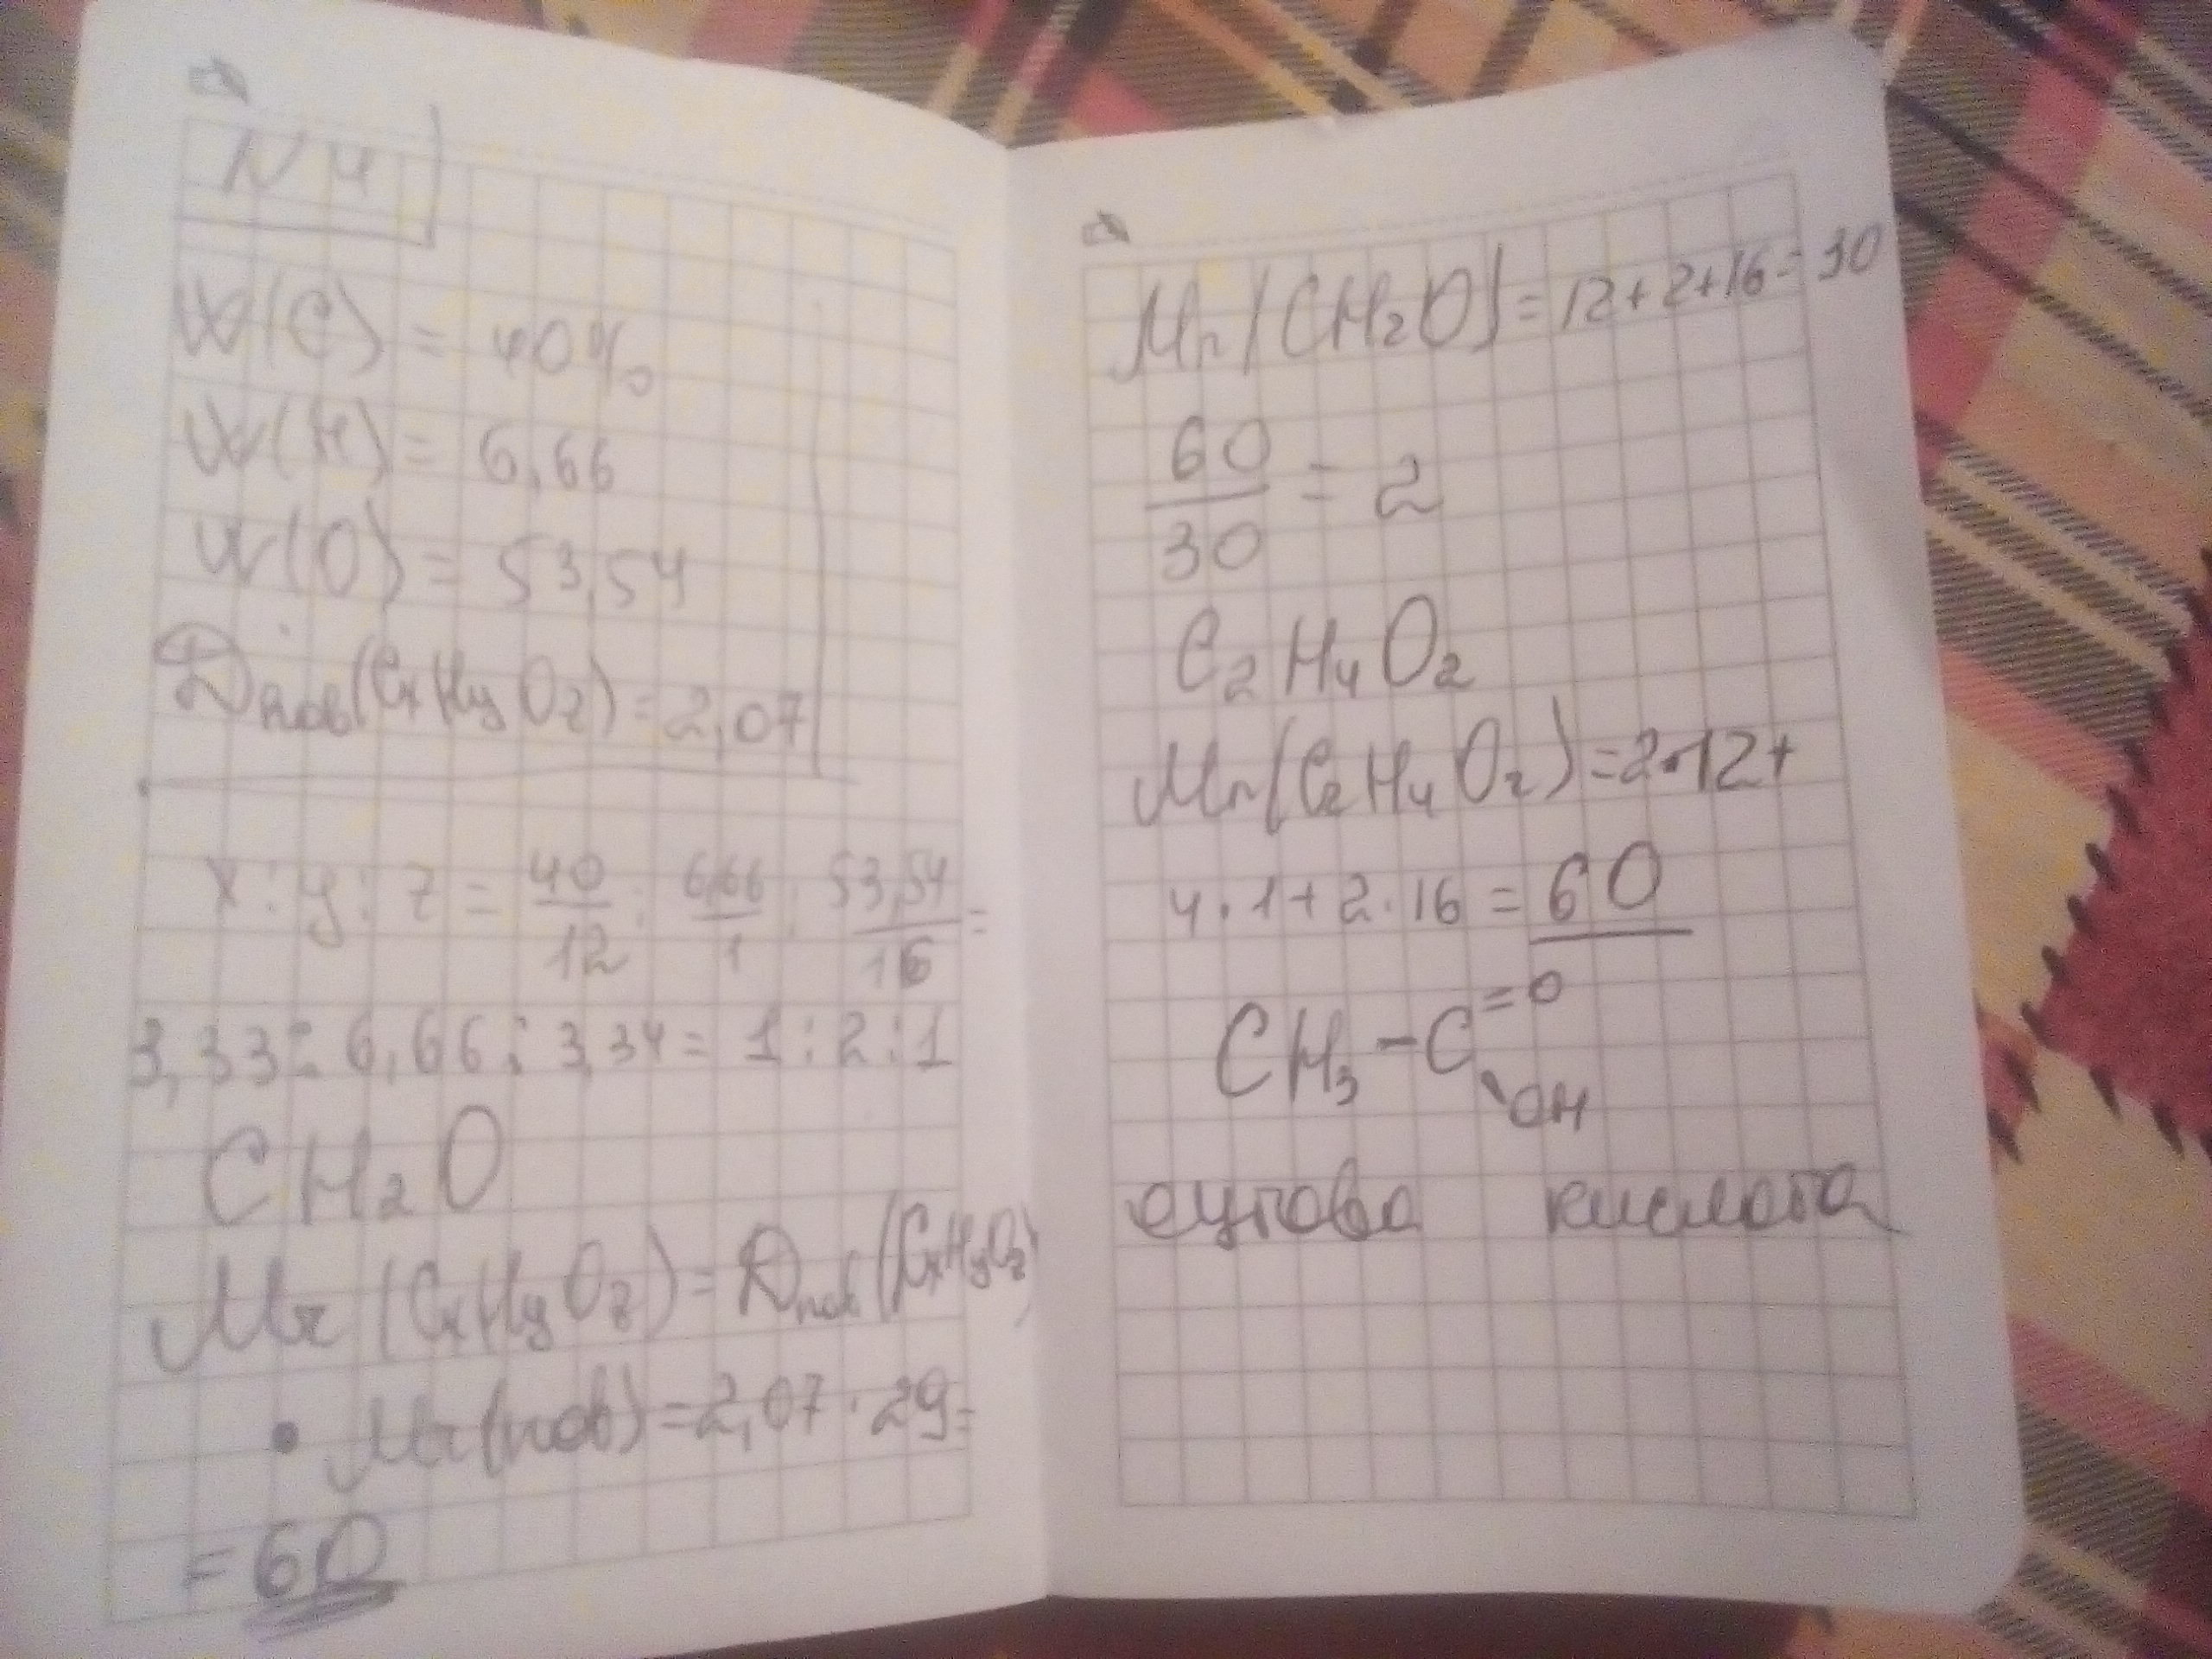 N 4
W(C) = 40%
W(H) = 6,66
W(O) = 53,54
Dпов(CxHyOz) = 2,07
x : y : z = 40/12 : 6,66/1 : 53,54/16 =
3,33 : 6,66 : 3,34 = 1 : 2 : 1
CH2O
Mr (CxHyOz) = Dпов(CxHyOz)
• Mr(пов) = 2,07 · 29 =
= 60
Mr(CH2O) = 12+2+16 = 30
60/30 = 2
C2H4O2
Mr(C2H4O2) = 2·12+
4·1+2·16 = 60
CH3-C=O
OH
оцтова кислота